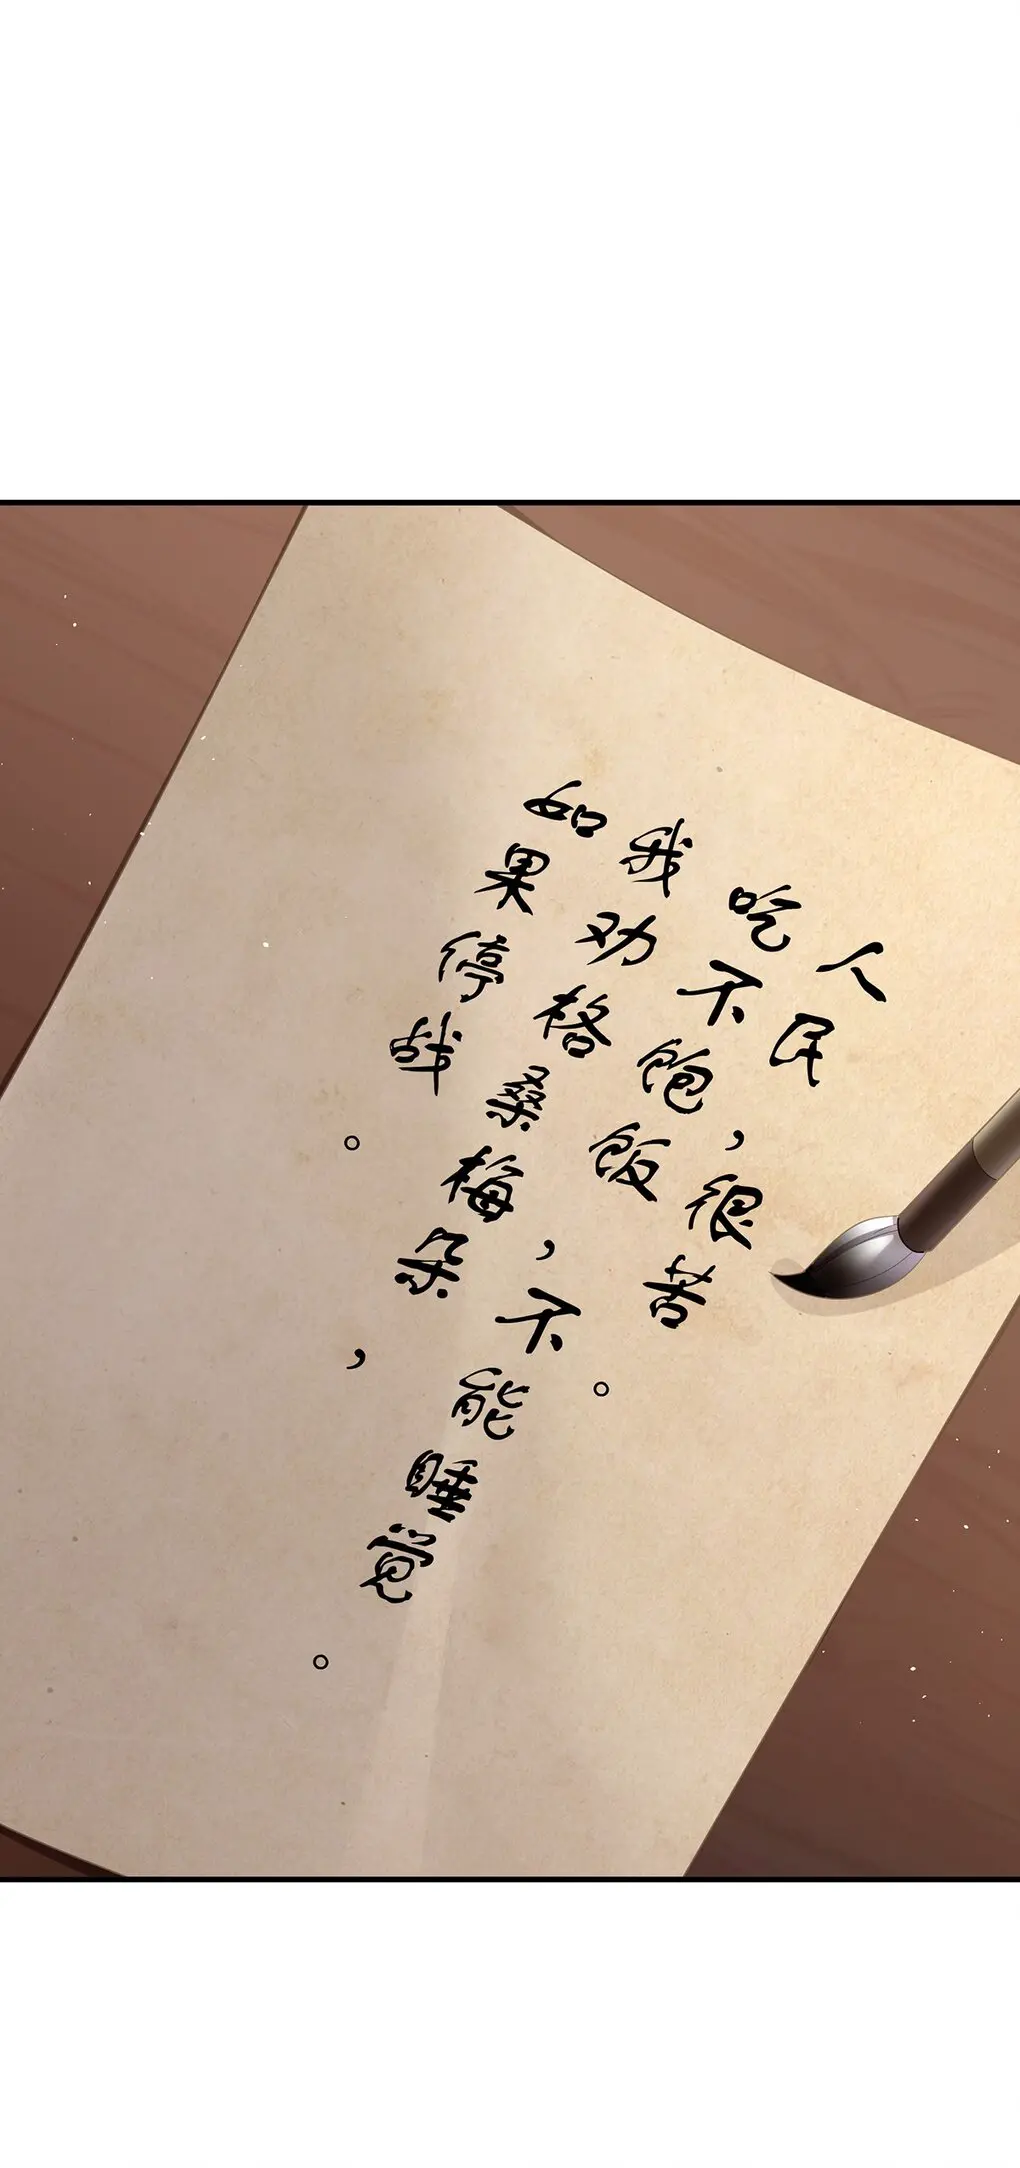 人民，很苦。
吃不饱饭，不能睡觉。
我劝格桑梅朵，
如果停战。